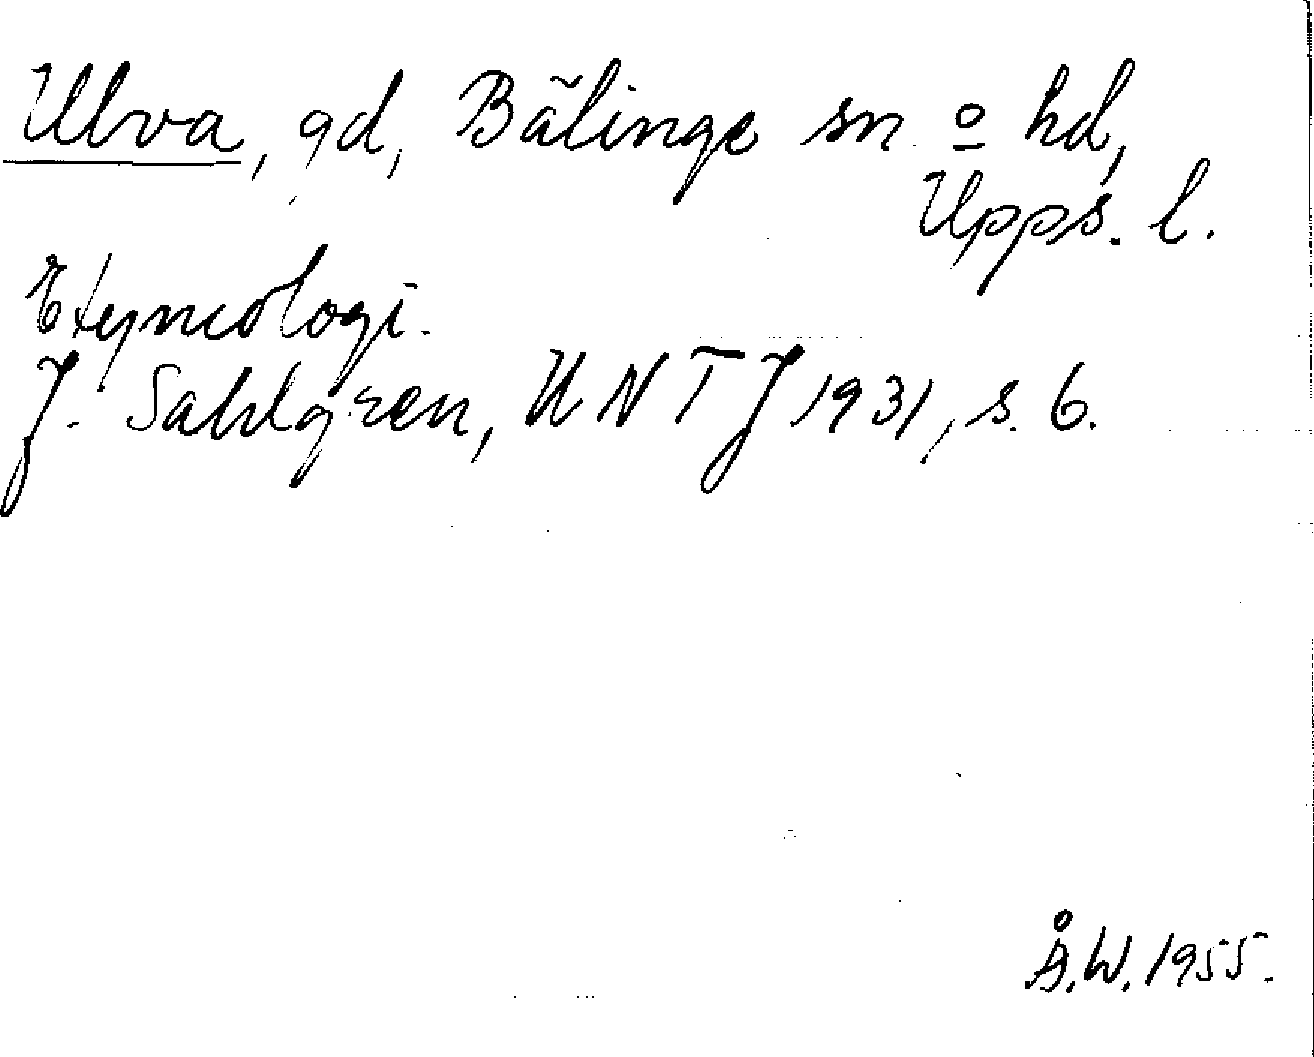 Ulva, gd, Bälinge sn o hd,
Upps. l.
Etymologi.
J. Sahlgren, UNTJ 1931, s. 6.
Å.W. 1955.